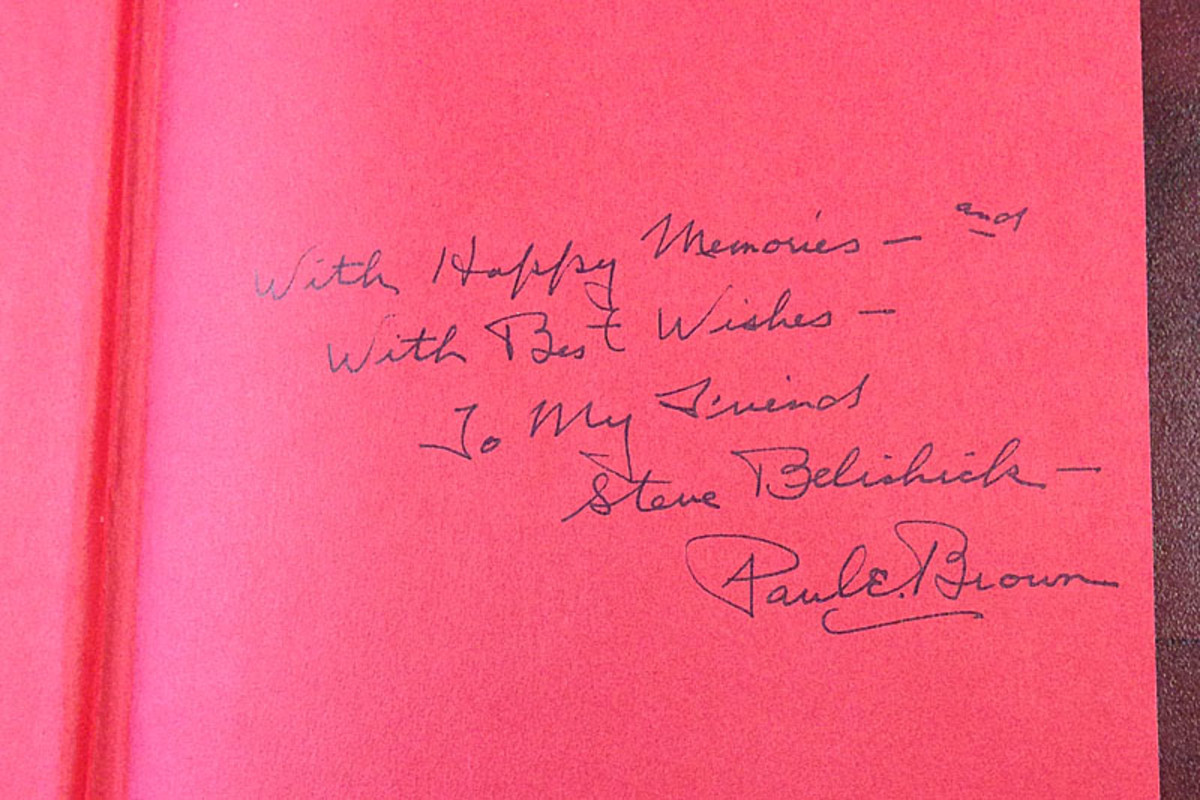 With Happy Memories – and
With Best Wishes –
To My Friend
Steve Belichick –
Paul E. Brown